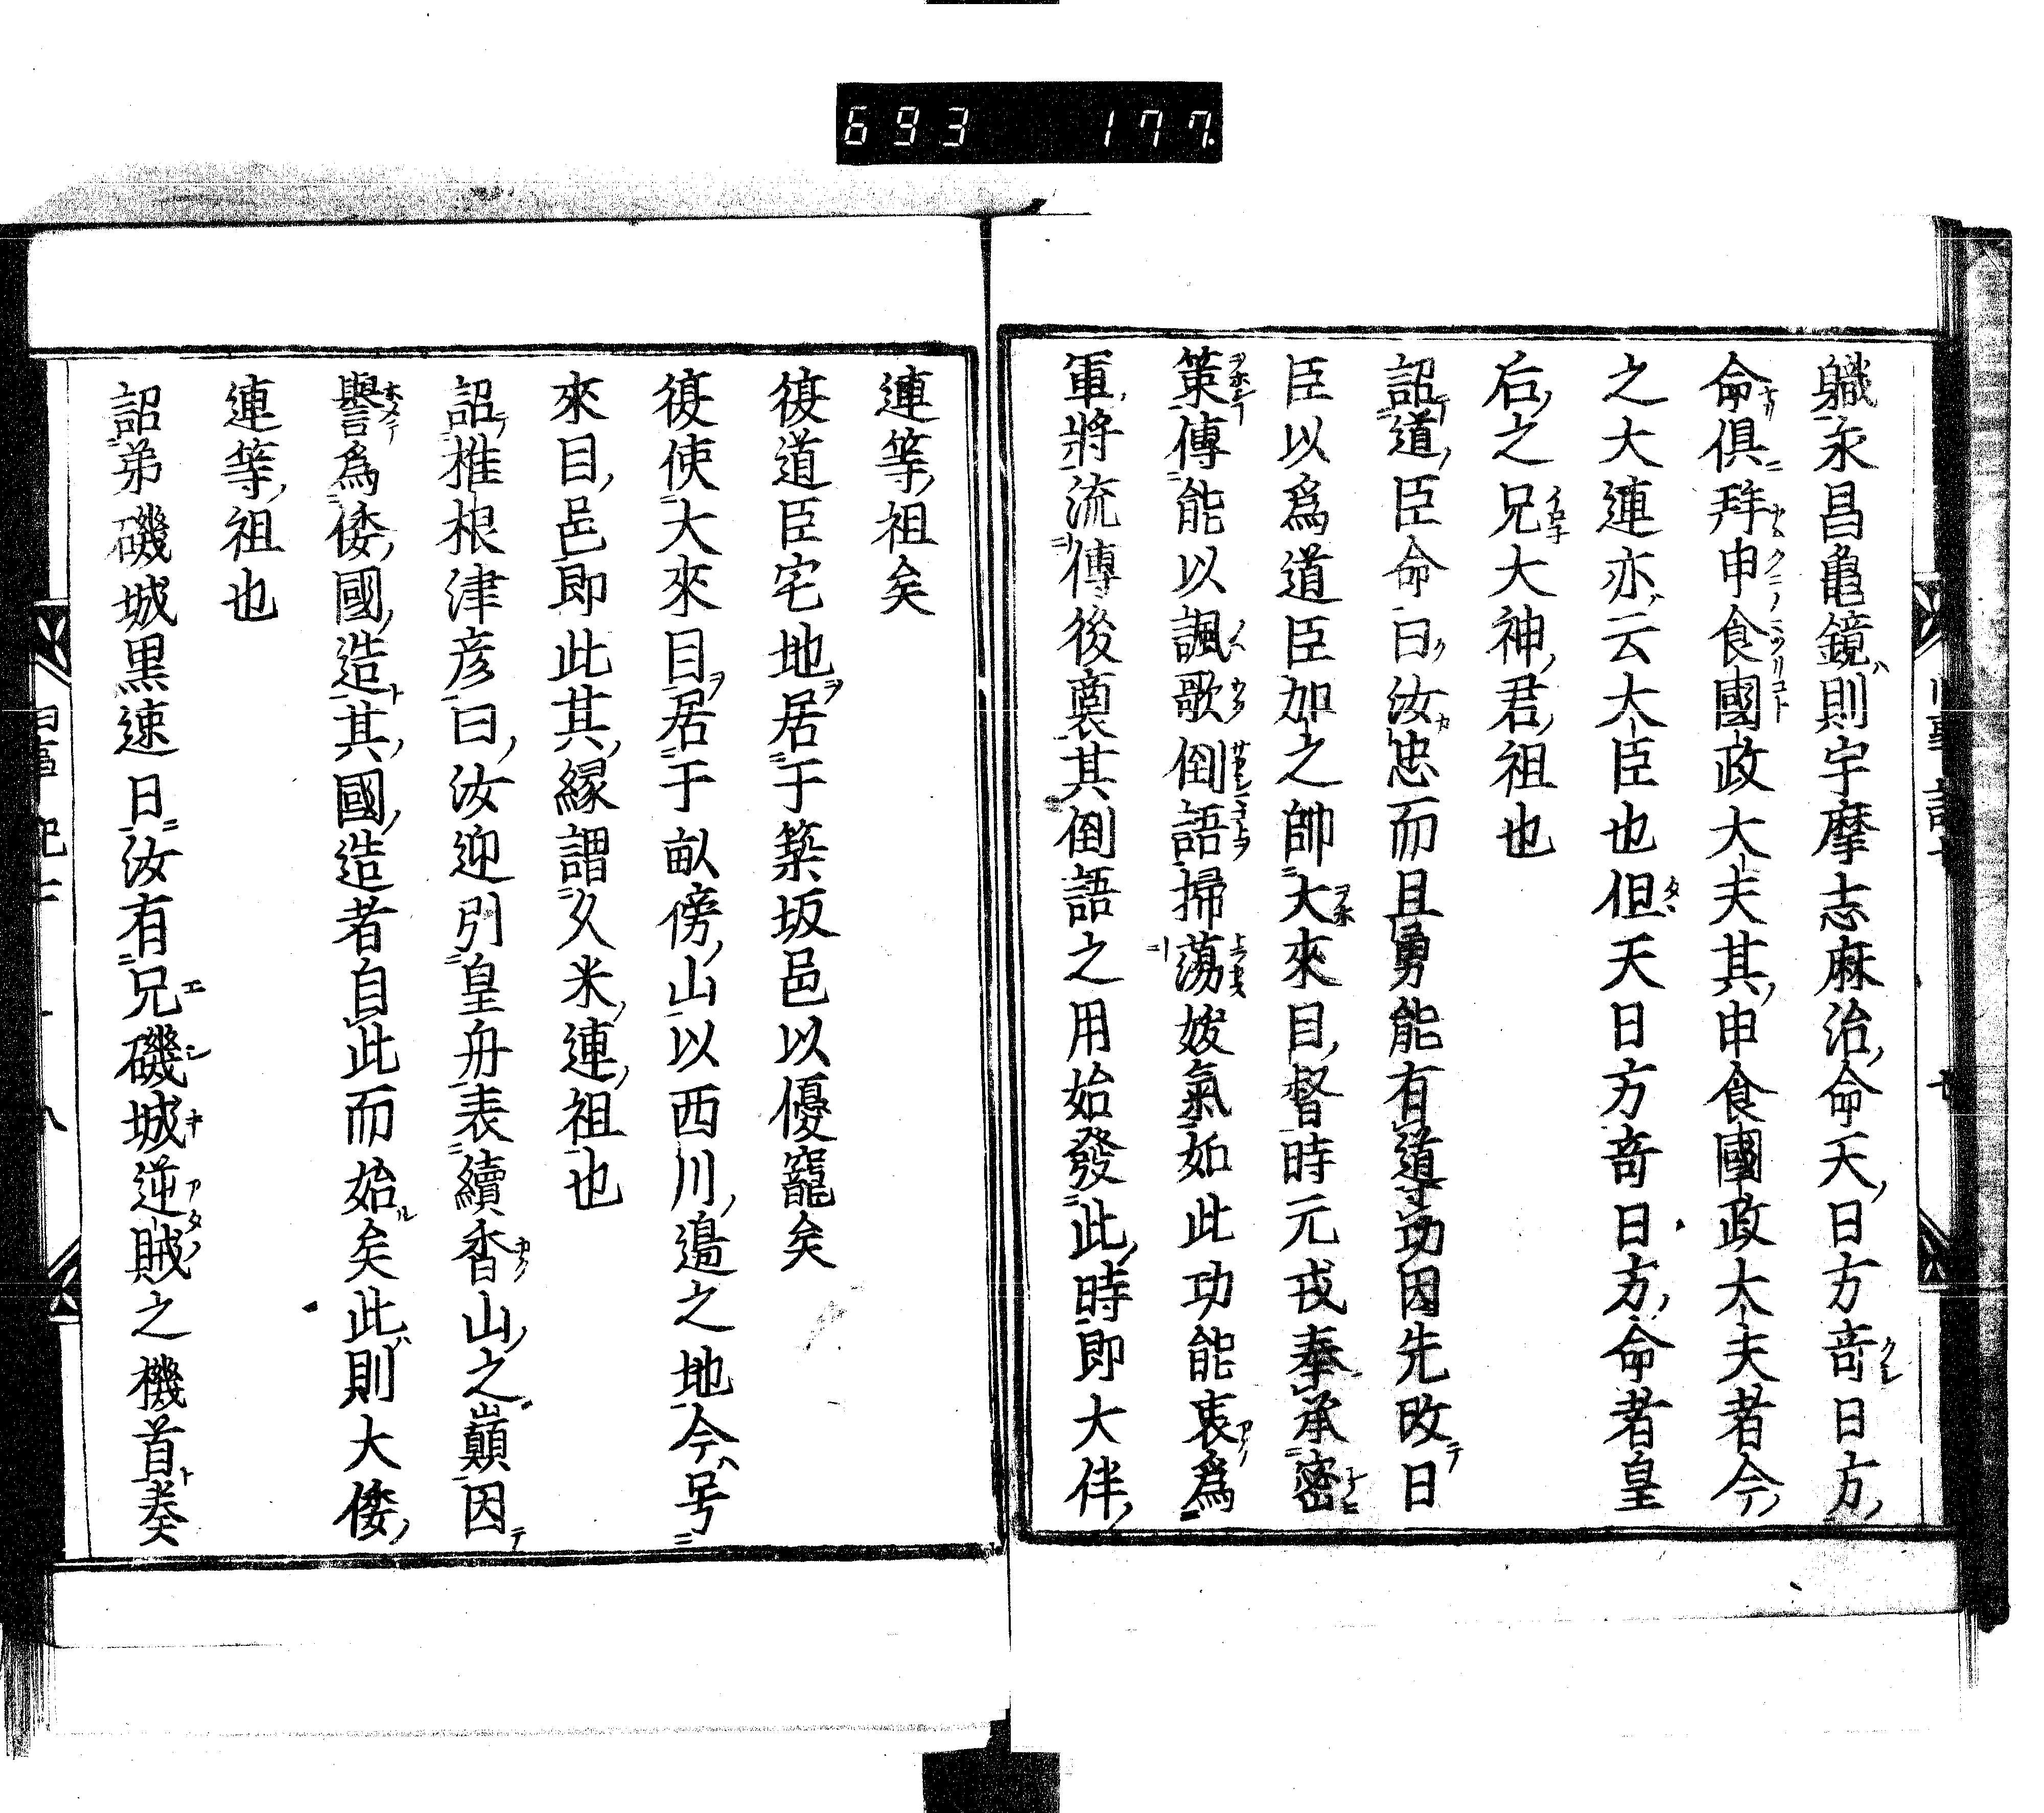 693 177
職永昌龜鏡則宇摩志麻治命天日方竒日方
命俱拜申食國政大夫其申食國政大夫者今
之大連亦云大臣也但天日方竒日方命者皇
后之兄大神君祖也
詔道臣命曰汝忠而且勇能有導功因先改日
臣以爲道臣加之帥大來目督時元戎奉承密
策傳能以諷歌倒語掃蕩妖氣如此功能衷爲
軍將流傳後裔其倒語之用始發此時即大伴
連等祖矣
復道臣宅地居于築坂邑以優寵矣
復使大來目居于畝傍山以西川邉之地今号
來目邑即此其縁謂久米連祖也
詔椎根津彦曰汝迎引皇舟表續香山之巔因
譽爲倭國造其國造者自此而始矣此則大倭
連等祖也
詔弟磯城黒速日汝有兄磯城逆賊之機首奏